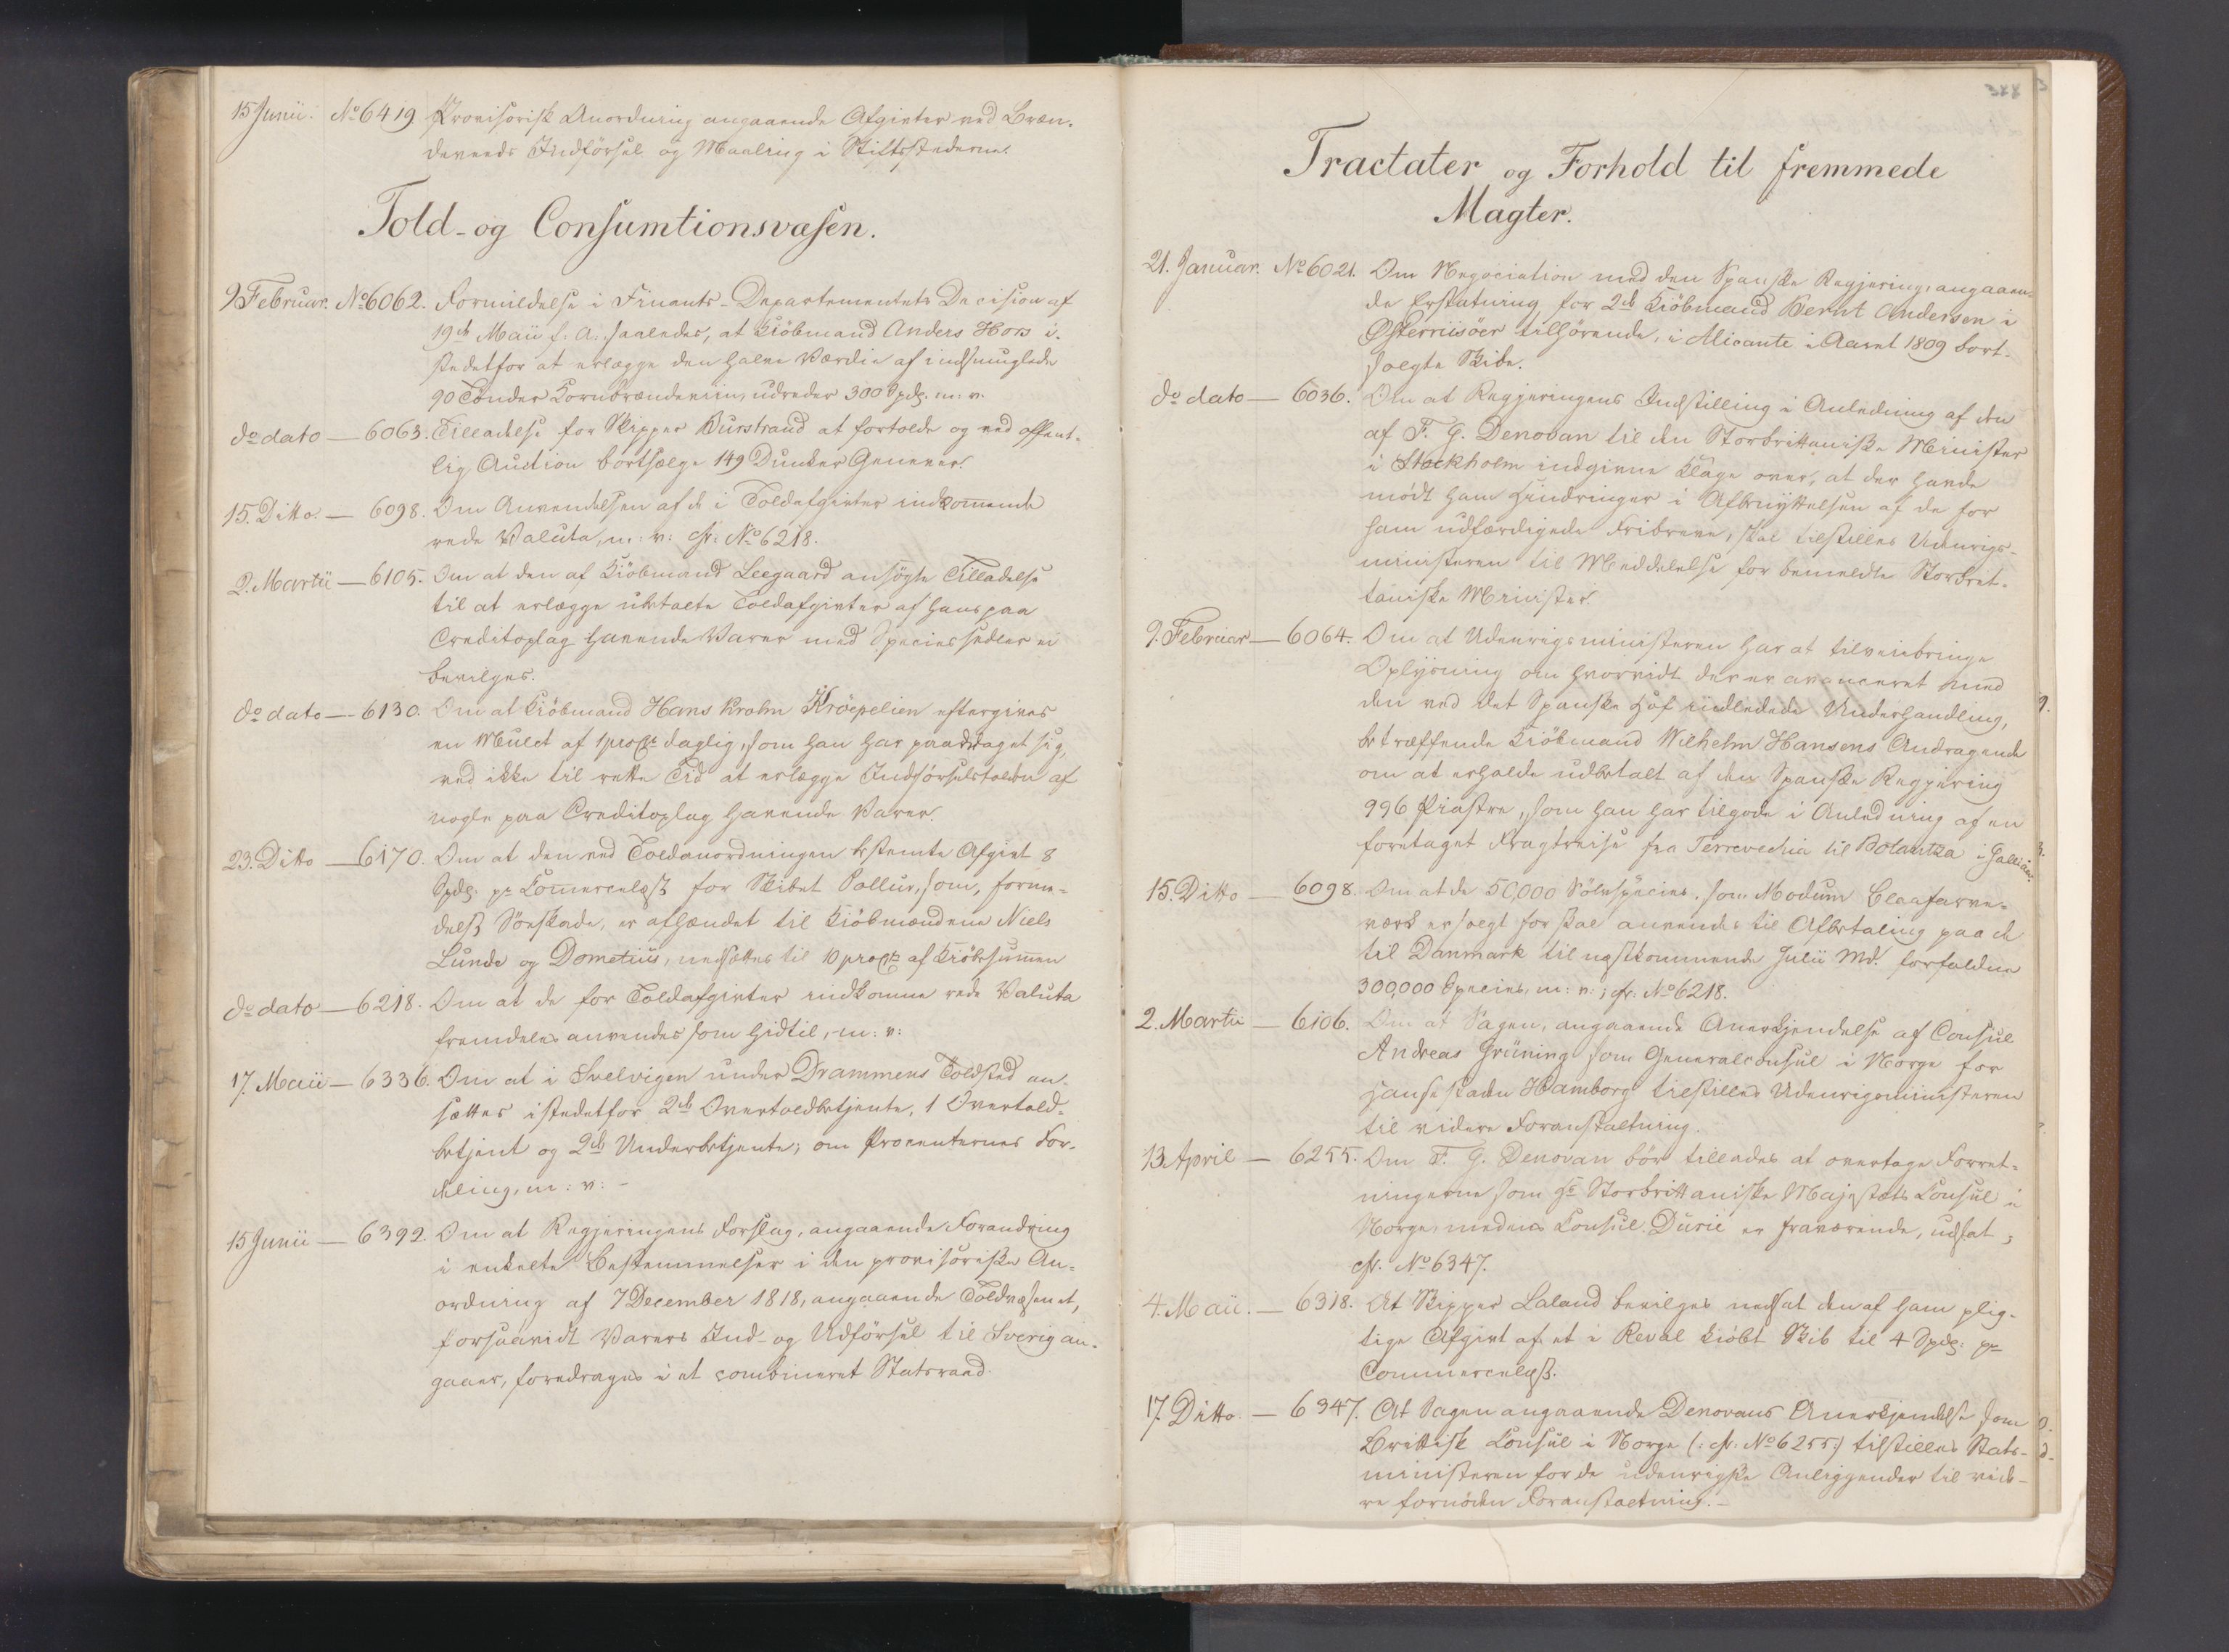 15 Junii. No 6419. Provisorisk Anordning angaaende Afgivter ved Bræn-
deveeds Indførsel og Maaling i Stiftsstæderne.
Told- og Consumtionsvæsen.
9. Februar. No 6062. Formildelse i Finants-Departementets Decision af
19de Maii f. A. saaledes, at Kiöbmand Anders Hors i-
stedetfor at erlægge den halve Værdie af indsmuglede
90 Tönder Kornbrændeviin, udreder 300 Spds. m. v.
do dato — 6063. Tilladelse for Skipper Burstrand at fortolde og ved offent-
lig Auction bortsælge 149 Dunker Genever.
15. Ditto. — 6098. Om Anvendelsen af de i Toldafgivter indkommende
rede Valuta, m: v: cfr: No 6218.
2. Martii — 6105. Om at den af Kiöbmand Leegaard ansögte Tilladelse
til at erlægge ubetalte Toldafgivter af hans paa
Creditoplag havende Varer med Speciessedler ei
bevilges.
do dato — 6130. Om at Kiöbmand Hans Krohn Kröepelien eftergives
en Mulct af 1 proCt daglig, som han har paadraget sig,
ved ikke til rette Tid at erlægge Indförselstolden af
nogle paa Creditoplag havende Varer.
23. Ditto — 6170. Om at den ved Toldanordningen bestemte Afgivt 8
Spds. pr Commercelæst for Skibet Pollux, som, forme-
delst Söeskade, er afhændet til Kiöbmændene Niels
Lunde og Dometius, nedsættes til 10 proCt af Kiöbesummen
do dato — 6218. Om at de for Toldafgivter indkomne rede Valuta
fremdeles anvendes som hidtil, m: v:
17. Maii — 6336. Om at i Svelvigen under Drammens Toldsted an-
sættes istedetfor 2de Overtoldbetjente, 1 Overtold-
betjent og 2de Underbetjente; om Procenternes For-
deling, m: v: -
15 Junii — 6392. Om at Regjeringens Forslag, angaaende Forandring
i enkelte Bestemmelser i den provisoriske An-
ordning af 7 December 1818, angaaende Toldvæsenet,
forsaavidt Varers Ind- og Udförsel til Sverig an-
gaaer, foredrages i et combineret Statsraad.
Tractater og Forhold til fremmede
Magter.
21. Januar. No 6021. Om Negociation med den Spanske Regjering, angaaen-
de Erstatning for 2de Kiöbmand Bernt Andersen i
Østerriisöer tilhörende, i Alicante i Aaret 1809 bort-
solgte Skibe.
do dato — 6036. Om at Regjeringens Indstilling i Anledning af den
af F. G. Denovan til den Storbrittaniske Minister
i Stockholm indgivne Klage over, at der havde
mödt ham Hindringer i Afbenyttelsen af de for
ham udfærdigede Fribreve, skal tilstilles Udenrigs-
ministeren til Meddelelse for bemeldte Storbrit-
taniske Minister.
9. Februar — 6064. Om at Udenrigsministeren har at tilveiebringe
Oplysning om hvorvidt der er avanceret med
den ved det Spanske Hof indledede Underhandling,
betræffende Kiöbmand Wilhelm Hansens Andragende
om at erholde udbetalt af den Spanske Regjering
996 Piastre, som han har tilgode i Anledning af en
foretaget Fragtreise fra Terrevechia til Bolantza i Gallicien.
15. Ditto — 6098. Om at de 50,000 Sölvspecies, som Modum Blaafarve-
værk er solgt for skal anvendes til Afbetaling paa de
til Danmark til næstkommende Julii Md. forfaldne
300,000 Species, m: v:; cfr: No 6218.
2. Martii — 6106. Om at Sagen, angaaende Anerkjendelse af Consul
Andreas Grüning som Generalconsul i Norge for
Hansestaden Hamborg tilstilles Udenrigsministeren
til videre Foranstaltning.
13. April — 6255. Om F. G. Denovan bör tillades at overtage Forret-
ningerne som Hs Storbrittaniske Majestæts Consul i
Norge, medens Consul Durie er fraværende, udsat;
cfr. No 6347.
4. Maii. — 6318. At Skipper Laland bevilges nedsat den af ham plig-
tige Afgivt af et i Reval kiöbt Skib til 4 Spds. pr
Commercelæst.
17. Ditto. — 6347. At Sagen angaaende Denovans Anerkjendelse som
Brittisk Consul i Norge (: cfr: No 6255:) tilstilles Stats-
ministeren for de udenrigske Anliggender til vide-
re fornöden Foranstaltning. -